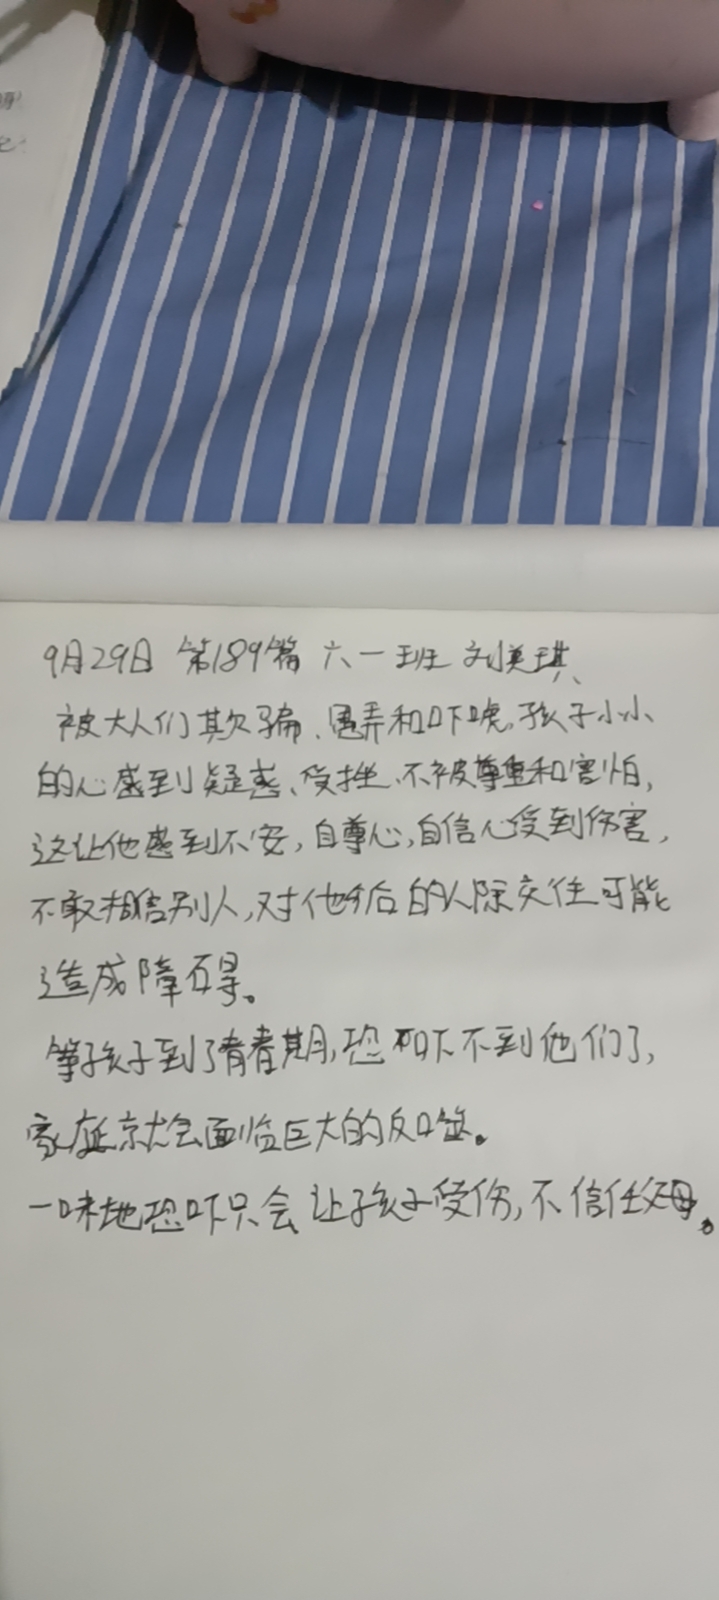 9月29日 第189篇 六一班 刘美琪
被大人们欺骗、愚弄和吓唬,孩子小小
的心感到疑惑、受挫、不被尊重和害怕,
这让他感到不安,自尊心,自信心受到伤害,
不敢相信别人,对他今后的人际交往可能
造成障碍。
等孩子到了青春期,恐吓不到他们了,
家庭就会面临巨大的反噬。
一味地恐吓只会让孩子受伤,不信任父母。